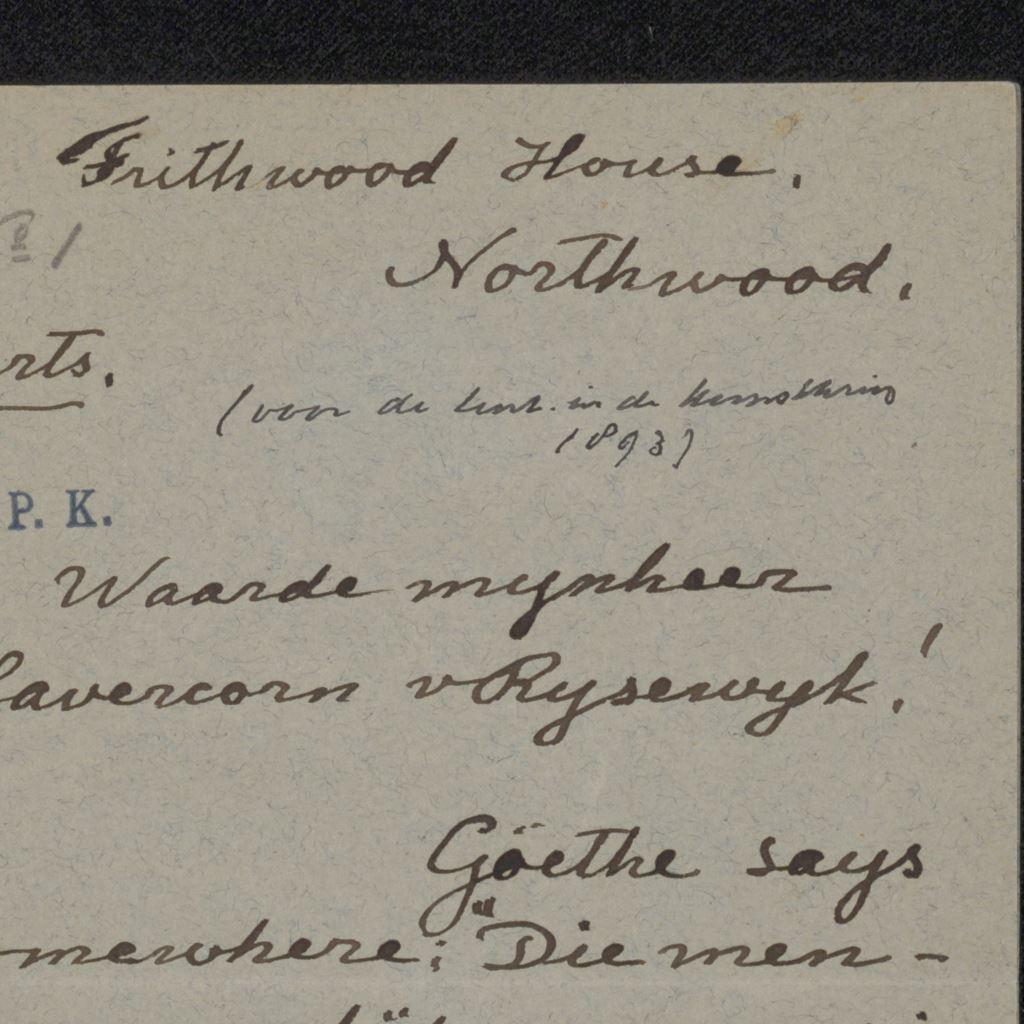 Frithwood House.
Northwood.
rts.
(voor de tent. in de Kunstkring
1893)
P. K.
Waarde mynheer
lavercorn v Rysewyk!
Göethe says
mewhere: "Die men-